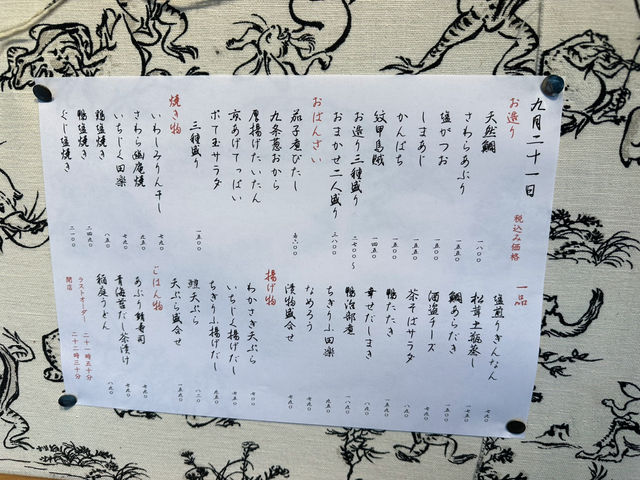 九月二十一日
税込み価格
お造り
天然鯛 一八〇〇
さわらあぶり 一五五〇
塩がつお 一五五〇
しまあじ 一五〇〇
かんぱち 一五〇〇
紋甲烏賊 一四五〇
お造り三種盛り 二七〇〇〜
おまかせ二人盛り 三八〇〇
おばんざい
茄子煮びたし
九条葱おから
厚揚げたいたん
京あげてっぱい
ポテ玉サラダ
三種盛り 一五〇〇
焼き物
いわしみりん干し 七五〇
さわら幽庵焼 九五〇
いちじく田楽 七五〇
鶏塩焼き 八五〇
鴨塩焼き 二四五〇
ぐじ塩焼き 二一〇〇
一品
塩煎りぎんなん 七五〇
松茸土瓶蒸し 一七五〇
鯛あらだき 一五〇〇
酒盗チーズ 七五〇
茶そばサラダ 八五〇
鴨たたき
幸せだしまき
鴨治部煮 一八五〇
ちぎり麩田楽 九五〇
なめろう
漬物盛合せ 七五〇
揚げ物
わかさぎ天ぷら 七〇〇
いちじく揚げだし
ちぎり麩揚げだし 九五〇
鱧天ぷら
天ぷら盛合せ 一八五〇
ごはん物
あぶり鯖寿司 七五〇
青海苔だし茶漬け 七五〇
稲庭うどん 八五〇
ラストオーダー 二十一時五十分
閉店 二十二時三十分